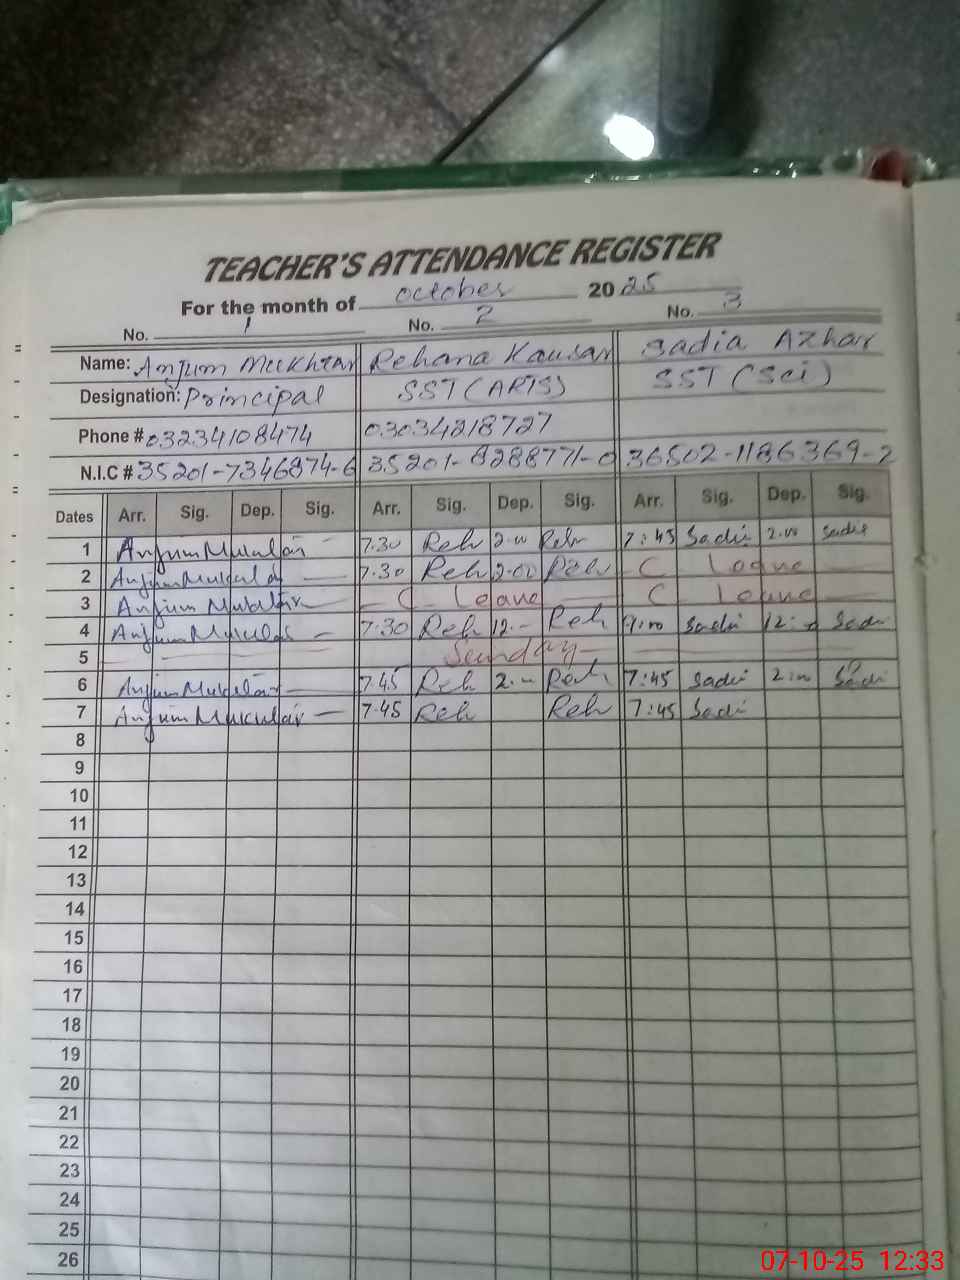 TEACHER'S ATTENDANCE REGISTER
For the month of october 2025
No. 1 No. 2 No. 3
Name: Anjum Mukhtar Rehana Kausar Sadia Azhar
Designation: Principal SST (ARTS) SST (Sci)
Phone # 03234108474 03034218727
N.I.C # 35201-7346874-6 35201-8288771-0 36502-1186369-2
Dates Arr. Sig. Dep. Sig. Arr. Sig. Dep. Sig. Arr. Sig. Dep. Sig.
1 7.30 Reh 2.00 Reh 7:45 Sadia 2.00 Sadia
2 7.30 Reh 2.00 Reh C Leave
3 C Leave C Leave
4 7.30 Reh 12.- Reh 9:00 Sadia 12:00 Sadia
5 Sunday
6 7.45 Reh 2.- Reh 7:45 Sadia 2:00 Sadia
7 7.45 Reh Reh 7:45 Sadia
8
9
10
11
12
13
14
15
16
17
18
19
20
21
22
23
24
25
26
07-10-25 12:33